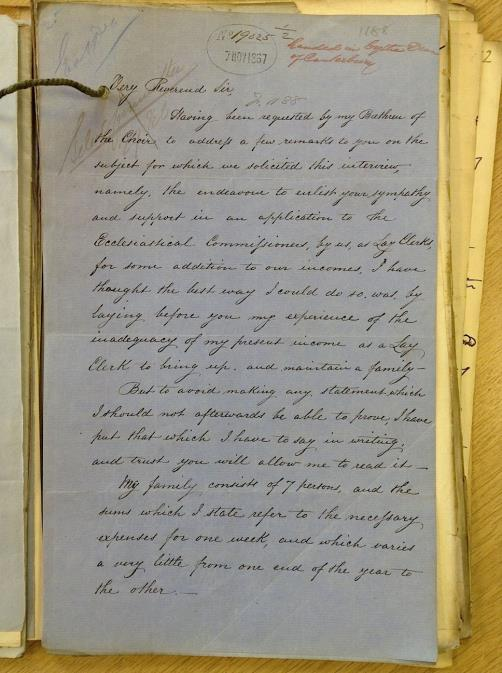 No 19025 1/2
7 NOV 1867
1188
handed in by the Dean
of Canterbury
Very Reverend Sir,
F. 1188
Having been requested by my Bathren of
the Choir, to address a few remarks to you on the
subject for which we solicited this interview,
namely, the endeavour to enlist your sympathy
and support in an application to the
Ecclesiastical Commissioners, by us, as Lay Clerks,
for some addition to our incomes, I have
thought the best way I could do so, was, by
laying before you my experience of the
inadequacy of my present income as a Lay
Clerk to bring up, and maintain a family —
But to avoid making any statement which
I should not afterwards be able to prove, I have
put that which I have to say in writing,
and trust you will allow me to read it —
My family consists of 7 persons, and the
sums which I state refer to the necessary
expenses for one week, and which varies
a very little from one end of the year to
the other. —